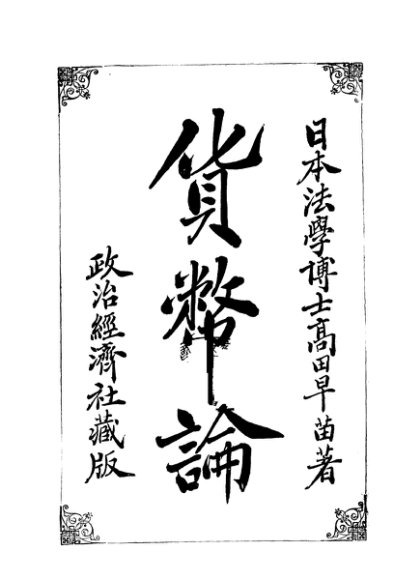 日本法學博士髙田早苗著
貨幣論
政治經濟社藏版